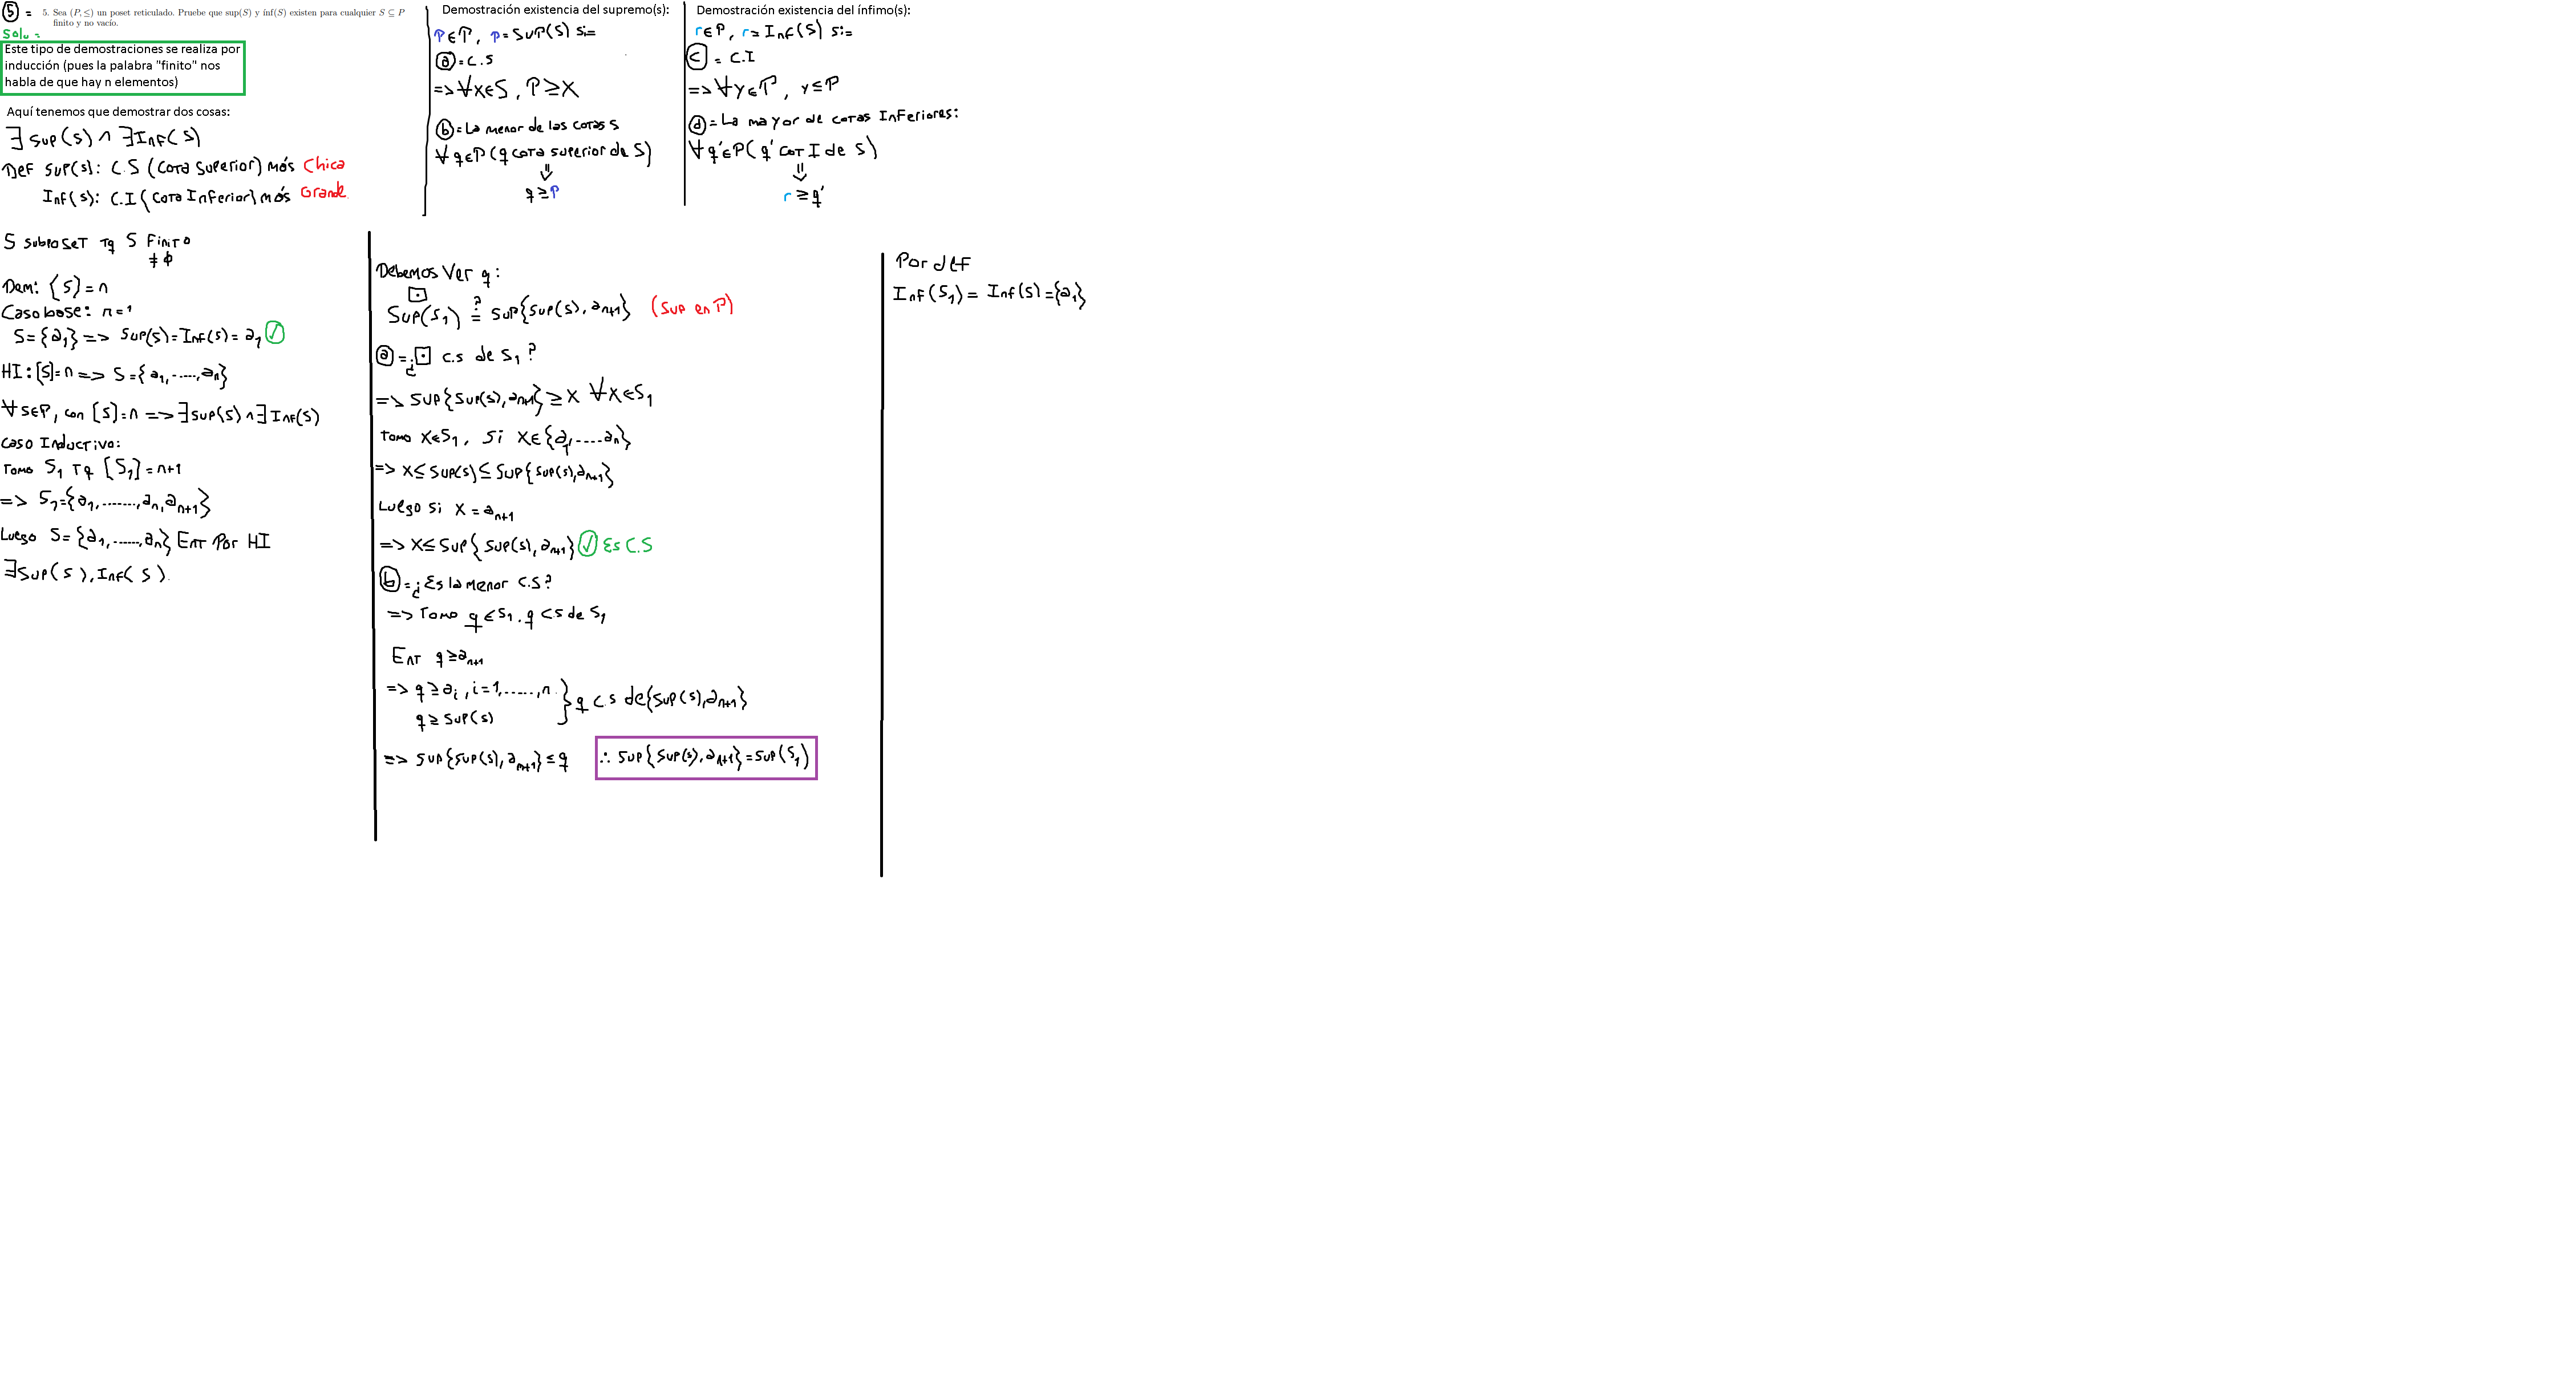 ⑤ = 5. Sea (P, ≤) un poset reticulado. Pruebe que sup(S) y ínf(S) existen para cualquier S ⊆ P
finito y no vacío.
Solu =
Este tipo de demostraciones se realiza por
inducción (pues la palabra "finito" nos
habla de que hay n elementos)
Aquí tenemos que demostrar dos cosas:
∃ Sup(S) ∧ ∃ Inf(S)
Def Sup(s): C.S (Cota Superior) más Chica
Inf(s): C.I (Cota Inferior) más Grande
Demostración existencia del supremo(s):
P∈P, P = SUP(S) Si=
ⓐ = C.S
=> ∀x∈S, P ≥ X
ⓑ = La menor de las cotas S
∀ q∈P (q cota superior de S)
⇓
q ≥ P
Demostración existencia del ínfimo(s):
r∈P, r = Inf(S) Si=
ⓒ = C.I
=> ∀y∈P, y ≤ P
ⓓ = La mayor de cotas Inferiores:
∀ q'∈P (q' cot I de S)
⇓
r ≥ q'
S subposet Tq S Finito
≠ ϕ
Dem: {S} = n
Caso base: n=1
S = {a₁} => Sup(s) = Inf(s) = a₁ ✓
HI: [S] = n => S = {a₁, ......, aₙ}
∀ S∈P, con [S] = n => ∃ sup(S) ∧ ∃ Inf(S)
Caso Inductivo:
Tomo S₁ Tq [S₁] = n+1
=> S₁ = {a₁, ......., aₙ, aₙ₊₁}
Luego S = {a₁, ......, aₙ} Ent Por HI
∃ Sup(S), Inf(S).
Debemos Ver q:
⊡
Sup(S₁) ≟ SUP{Sup(S), aₙ₊₁} (Sup en P)
ⓐ = ¿⊡ C.S de S₁?
=> SUP{Sup(s), aₙ₊₁} ≥ X ∀X∈S₁
Tomo X∈S₁, Si X∈{a₁, .... aₙ}
=> X ≤ Sup(s) ≤ SUP{Sup(s), aₙ₊₁}
Luego Si X = aₙ₊₁
=> X ≤ Sup{Sup(s), aₙ₊₁} ✓ Es C.S
ⓑ = ¿Es la menor C.S?
=> Tomo q∈S₁. q C.S de S₁
Ent q ≥ aₙ₊₁
=> q ≥ aᵢ, i = 1, ......, n } q C.S de {Sup(s), aₙ₊₁}
q ≥ Sup(s)
=> SUP{Sup(s), aₙ₊₁} ≤ q ∴ SUP{Sup(s), aₙ₊₁} = SUP(S₁)
Por def
Inf(S₁) = Inf(S) = {a₁}